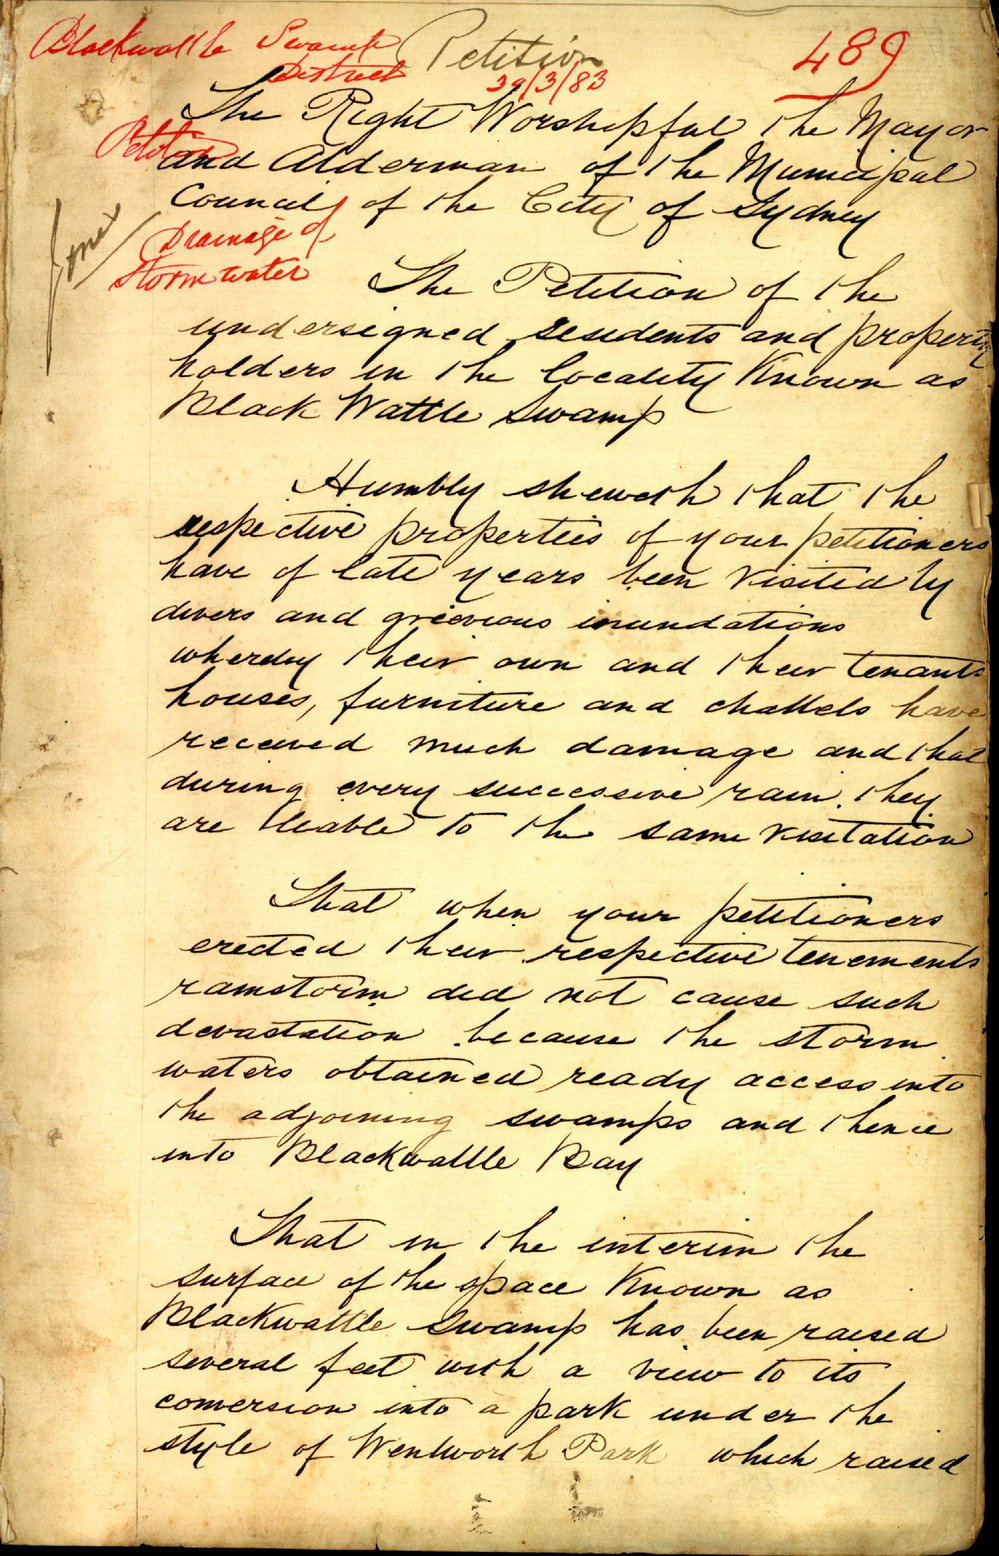 Blackwattle Swamp
District
Petition
29/3/83
489
The Right Worshipful the Mayor
and Alderman of the Municipal
Council of the City of Sydney
Petition
Drainage of
Storm water
The Petition of the
undersigned residents and property
holders in the locality Known as
Black Wattle Swamp
Humbly sheweth that the
respective properties of your petitioners
have of late years been visited by
divers and grievious inundations
whereby their own and their tenants
houses, furniture and chattels have
received much damage and that
during every successive rain they
are liable to the same visitation
That when your petitioners
erected their respective tenements
rainstorm did not cause such
devastation because the storm
waters obtained ready access into
the adjoining swamps and thence
into Blackwattle Bay
That in the interim the
surface of the space Known as
Blackwattle Swamp has been raised
several feet with a view to its
conversion into a park under the
style of Wentworth Park which raised